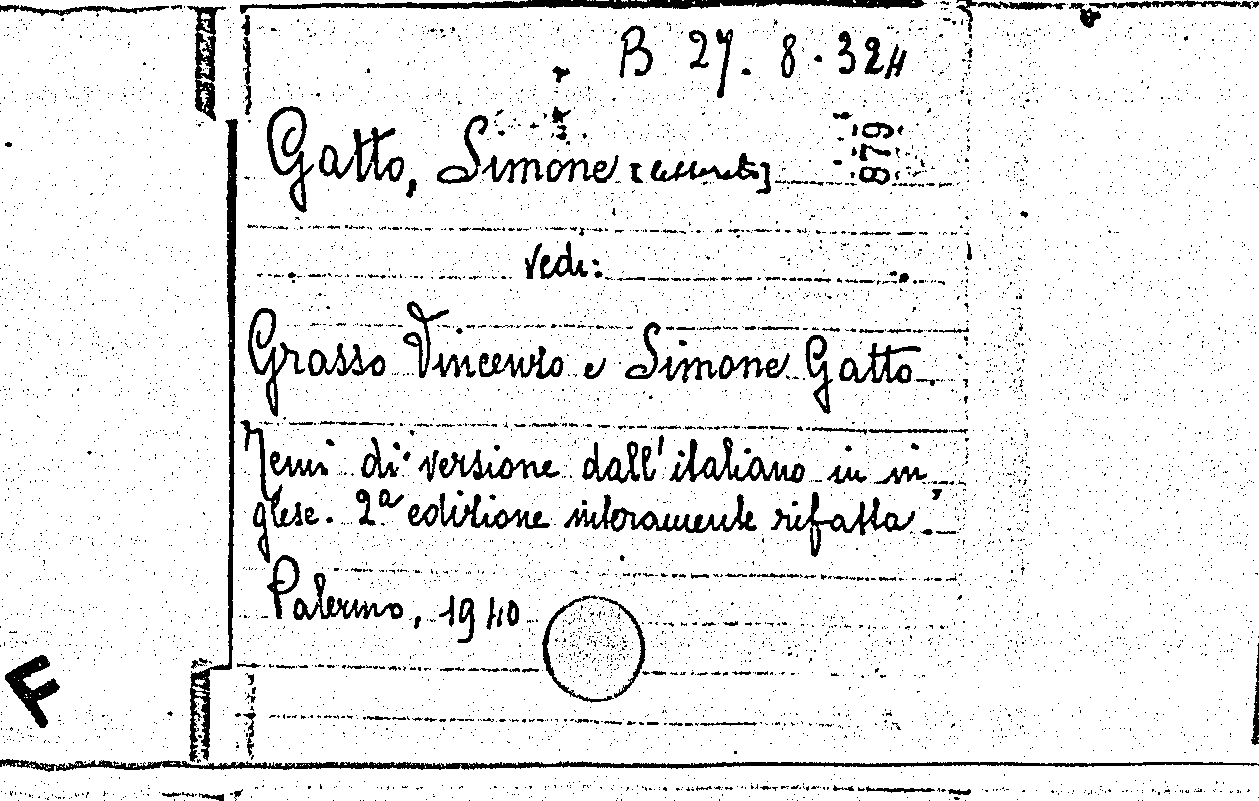 B 27. 8. 324
879
Gatto, Simone [letterato]
vedi:
Grasso Vincenzo e Simone Gatto.
Temi di versione dall'italiano in in,
glese. 2ª edizione interamente rifatta.
Palermo, 1940